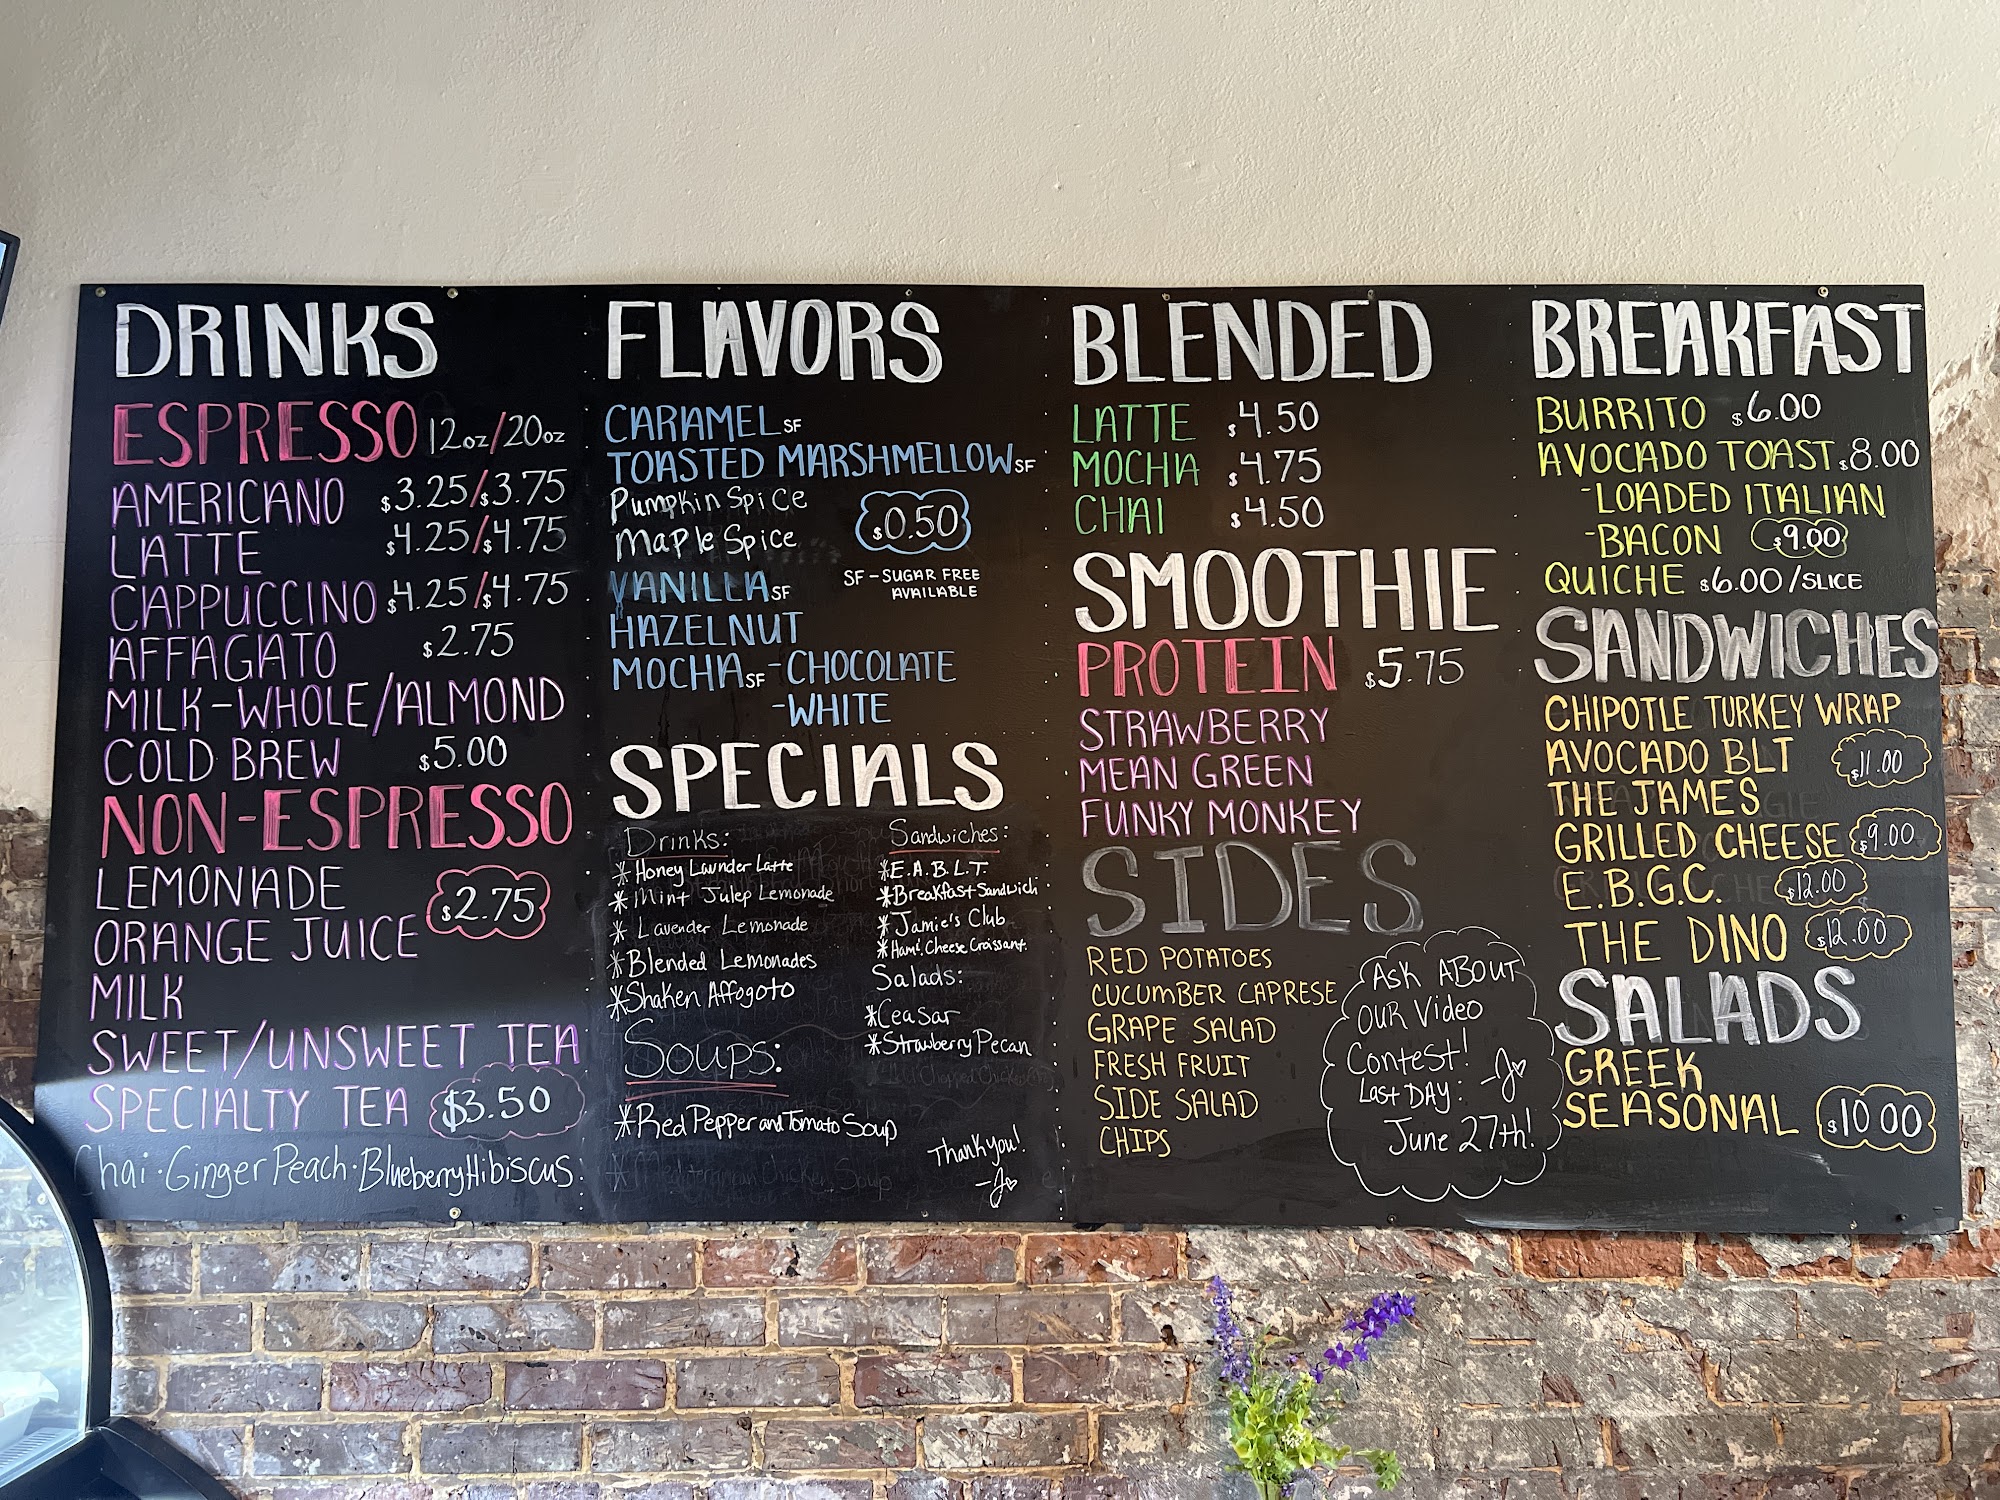 DRINKS
ESPRESSO 12oz/20oz
AMERICANO $3.25/$3.75
LATTE $4.25/$4.75
CAPPUCCINO $4.25/$4.75
AFFAGATO $2.75
MILK-WHOLE/ALMOND
COLD BREW $5.00
NON-ESPRESSO
LEMONADE
ORANGE JUICE
$2.75
MILK
SWEET/UNSWEET TEA
SPECIALTY TEA $3.50
Chai · Ginger Peach · Blueberry Hibiscus
FLAVORS
CARAMEL SF
TOASTED MARSHMELLOW SF
Pumpkin Spice
Maple Spice
$0.50
VANILLA SF
SF - SUGAR FREE
AVAILABLE
HAZELNUT
MOCHA SF - CHOCOLATE
- WHITE
SPECIALS
Drinks:
* Honey Lavnder Latte
* Mint Julep Lemonade
* Lavender Lemonade
* Blended Lemonades
* Shaken Affogoto
Soups:
* Red Pepper and Tomato Soup
Sandwiches:
* E.A.B.L.T.
* Breakfast Sandwich
* Jamie's Club
* Ham & Cheese Croissant.
Salads:
* Ceasar
* Strawberry Pecan
Thank you!
-J
BLENDED
LATTE $4.50
MOCHA $4.75
CHAI $4.50
SMOOTHIE
PROTEIN $5.75
STRAWBERRY
MEAN GREEN
FUNKY MONKEY
SIDES
RED POTATOES
CUCUMBER CAPRESE
GRAPE SALAD
FRESH FRUIT
SIDE SALAD
CHIPS
ASK ABOUT
OUR Video
Contest!
-J
LAST DAY:
June 27th!
BREAKFAST
BURRITO $6.00
AVOCADO TOAST $8.00
-LOADED ITALIAN
-BACON $9.00
QUICHE $6.00/SLICE
SANDWICHES
CHIPOTLE TURKEY WRAP
AVOCADO BLT
$11.00
THE JAMES
GRILLED CHEESE $9.00
E.B.G.C. $12.00
THE DINO $12.00
SALADS
GREEK
SEASONAL $10.00